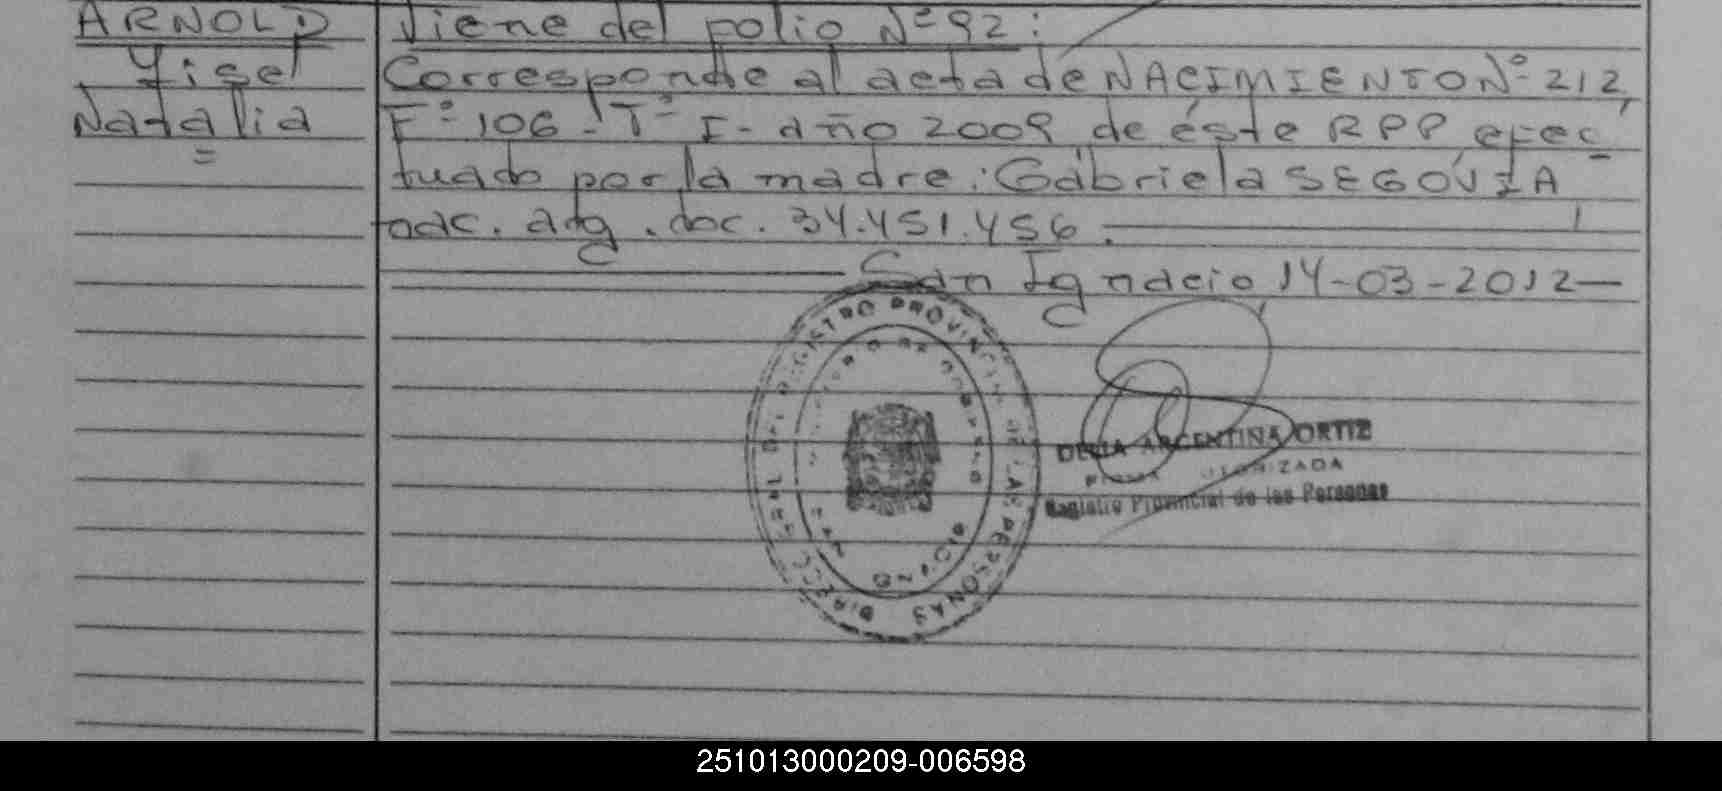 ARNOLD
Yisel
Natalia
=
Viene del folio Nº 92:
Corresponde al acta de NACIMIENTO Nº 212,
Fº 106 - Tº I - año 2009 de éste RPP efec
tuado por la madre: Gabriela SEGOVIA
nac. arg. doc. 34.451.456.
San Ignacio 14-03-2012
REGISTRO PROVINCIAL DE LAS PERSONAS
DELIA ARGENTINA ORTIZ
FIRMA AUTORIZADA
Registro Provincial de las Personas
251013000209-006598